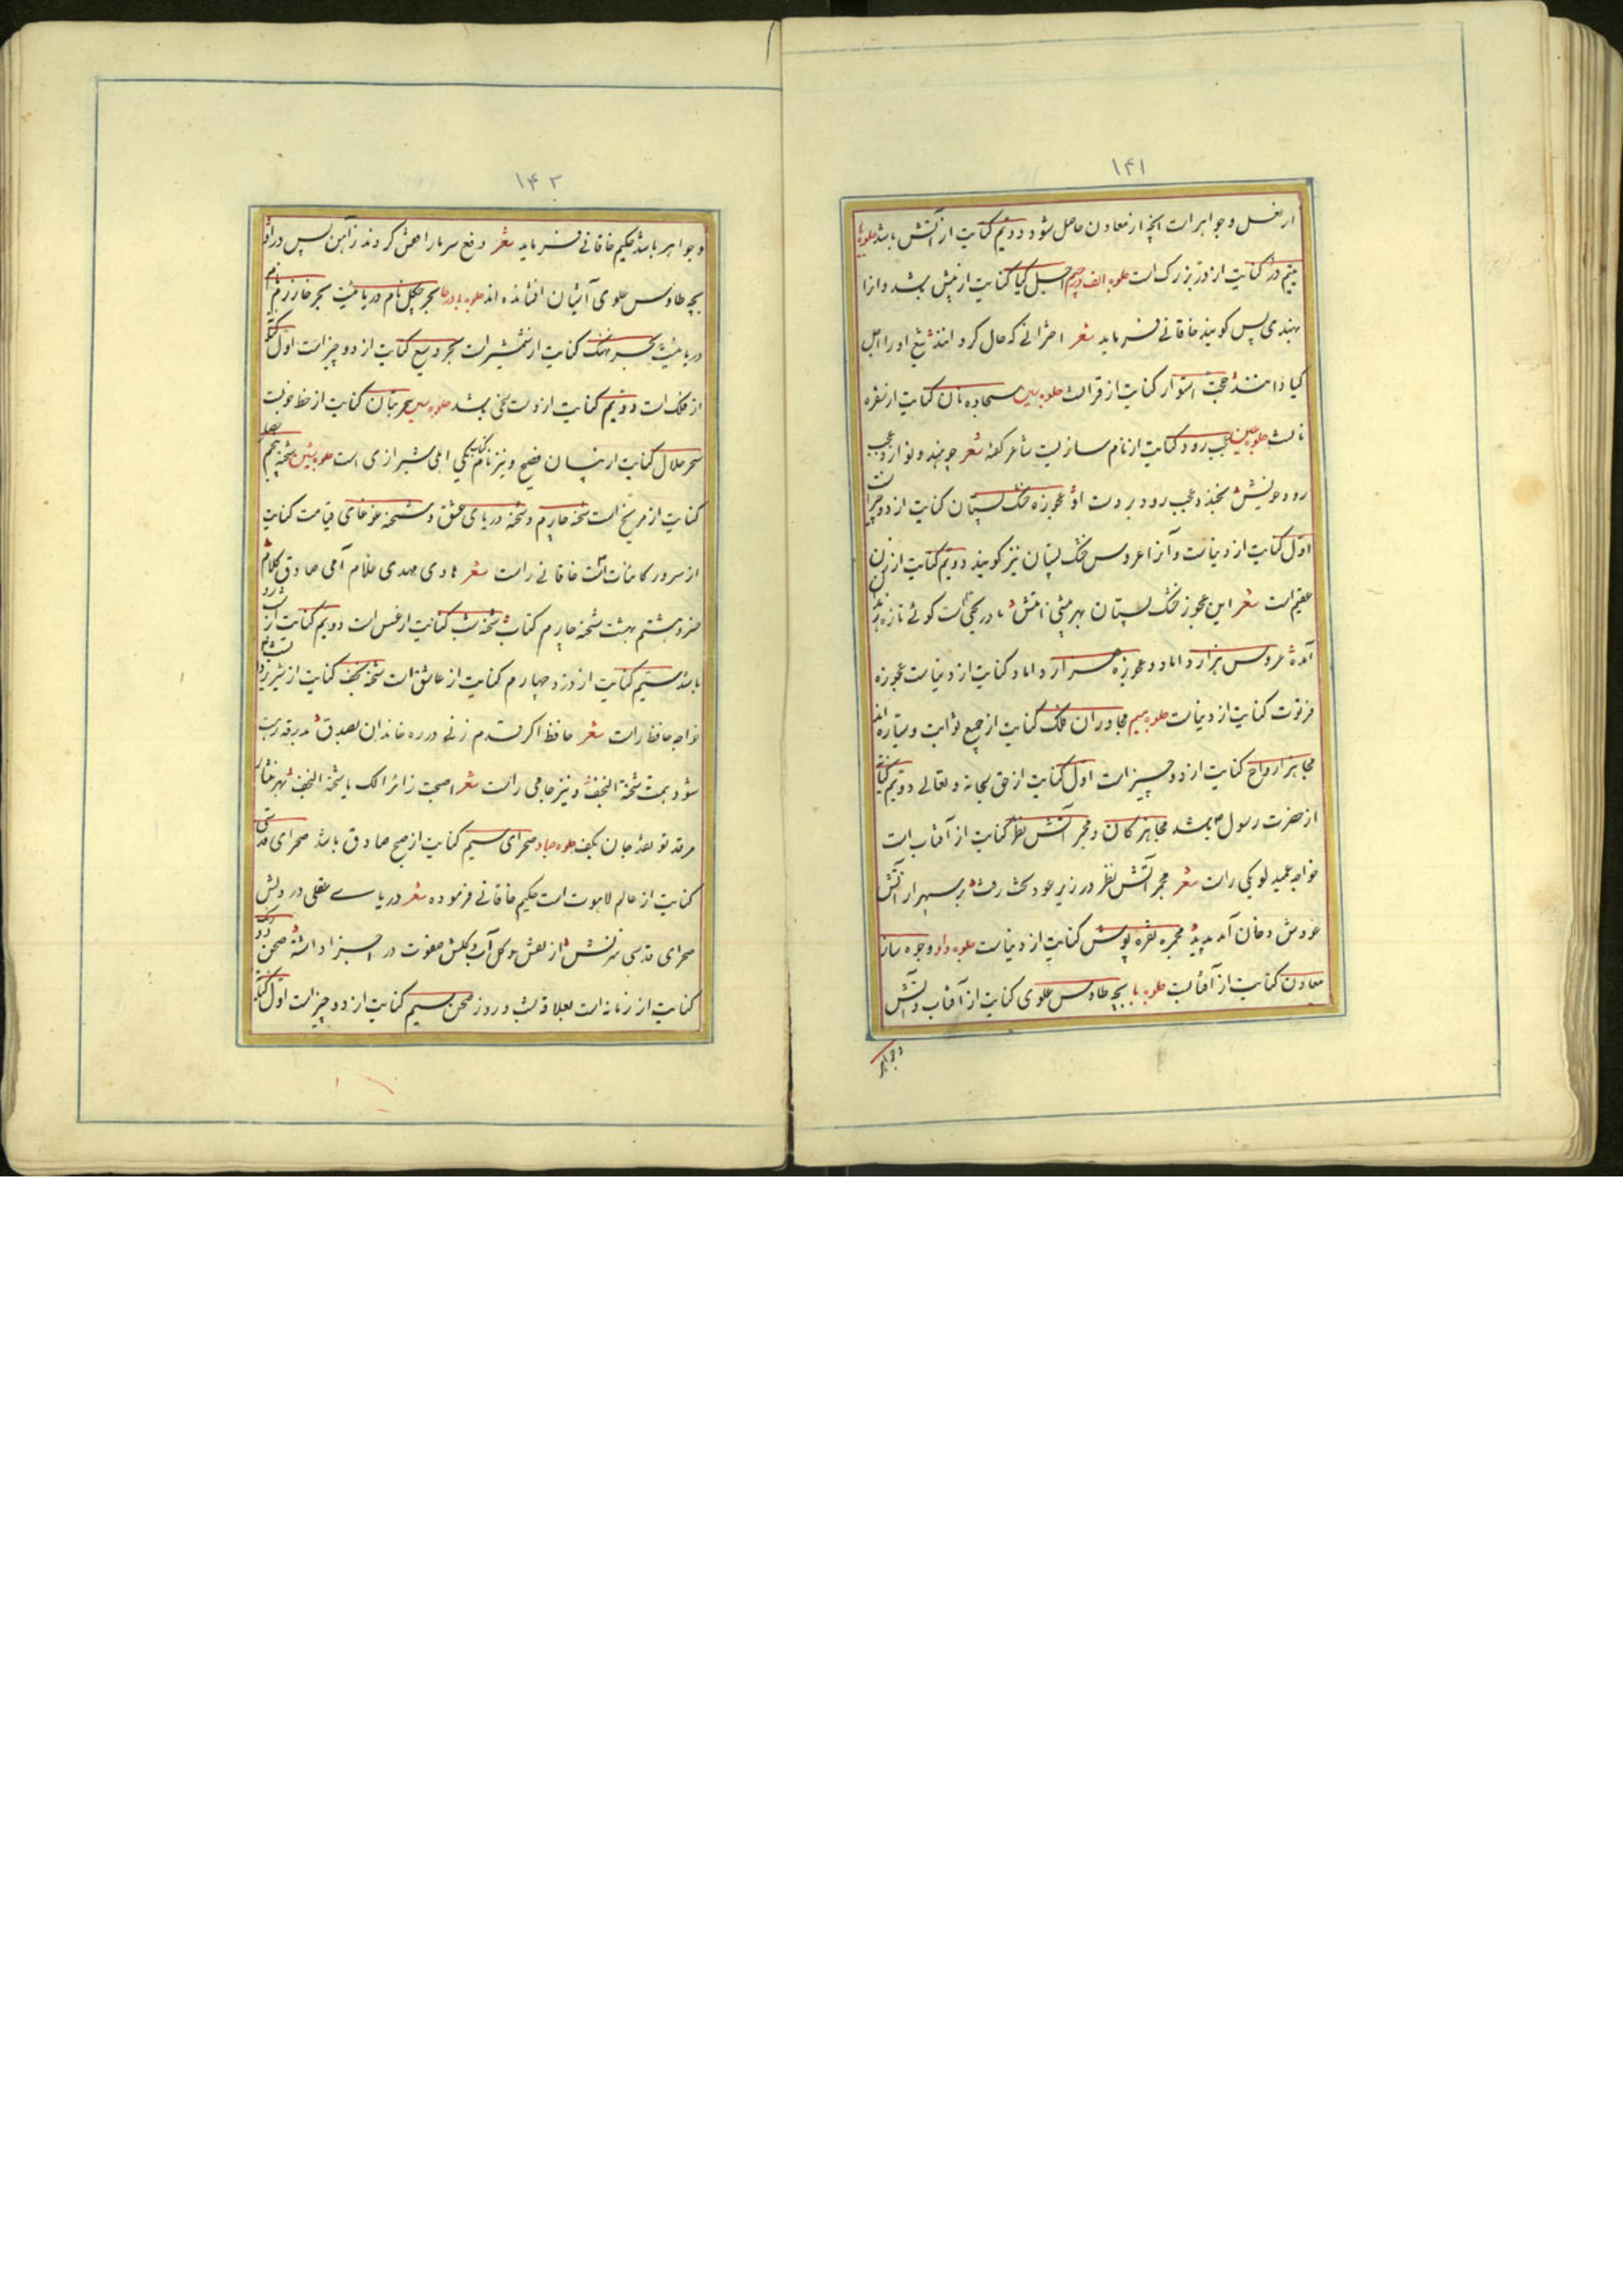 ۱۴۱
از لعل و جواهرات آنچه از معادن حاصل شود و دویم کنایت از آتش باشد جلوه یا
یتیم در کنایت از در بزرک است جلوه الف و جیم اجل کیا کنایت از بیش باشد و انرا
بهندی بس کویند خاقانی فرماید شعر اخترانی که حال کرد انند تیغ او را اجل
کیا دانند حجت استوار کنایت از قرانست جلوه سین سجاده نان کنایت از سفره
نانست جلوه عین عجب رود کنایت از نام سازیست شاعر کفته شعر چو هندو نوازد عجب
رود عجب رود بر دست او عجوزه خشک پستان کنایت از دو چیز است
اول کنایت از دنیاست و آنرا عروس خشک پستان نیز کویند دویم کنایت از زن
عقیم است شعر این عجوز خشک پستان بهر
آمده عروس هزار داماد و عجوزه هزار داماد کنایت از دنیاست عجوزه
فرتوت کنایت از دنیاست جلوه میم مجاوران فلک کنایت از جمیع ثوابت و سیاره اند
مجاهز ارواح کنایت از دو چیز است اول کنایت از حق سبحانه و تعالی دویم کنایت
از حضرت رسول ص باشد مجاهز کان و مجمر آتش نظر کنایت از آفتاب است
خواجه عمید لوبکی راست شعر مجمر آتش نظر در زیر عود رفت بر سپهر از آتش
عودش دخان آمد پدید مجمره نقره پوش کنایت از دنیاست جلوه واو وجوه ساز
معادن کنایت از آفتابست جلوه با بچه طاوس علوی کنایت از آفتاب و آتش
وجواهر
۱۴۲
و جواهر باشد حکیم خاقانی فرماید شعر دفع سرما را قفس کردند زآهن پس در او
بچه طاوس علوی آشیان افشانده اند جلوه با و حا بحر چکل نام دریائیست بحر خارزم نام
دریائیست بحر نهنک کنایت از شمشیر است بحر وسیع کنایت از دو چیز است اول کنایت
از فلک است و دویم کنایت از دست سخی باشد جلوه سین سحر بنان کنایت از خط خوبست
سحر حلال کنایت از بیان فصیح و نیز نام کتابی اهلی شیرازی است جلوه شین شحنه پنجم
کنایت از مریخ است شحنه چارم و شحنه دریای عشق و شحنه غوغای قیامت کنایت
از سرور کاینات است خاقانی راست شعر هادی مهدی غلام امی صادق کلام
خسرو هشتم بهشت شحنه چارم کتاب شحنه شب کنایت از عسس است دویم کنایت از
باشد سیم کنایت از دزد چهارم کنایت از عاشق است شحنه نجف کنایت از
خواجه حافظ راست شعر حافظ اکر قدم زنی در ره خاندان بصدق بدرقه رهت
شود همت شحنة النجف و نیز جامی راست شعر اصبحت زائرا لک یا شحنة النجف بهر نثار
مرقد تو نقد جان بکف جلوه صاد صحرای سیم کنایت از صبح صادق باشد صحرای قدسی
کنایت از عالم لاهوت است حکیم خاقانی فرموده شعر دریای عقلی در دلش
صحرای قدسی منزلش از نفس و کل آب و کلش صفوت در اجزا داشته صحن
کنایت از زمانه است بعلاقه شب و روز صحن سیم کنایت از دو چیز است اول کنایت